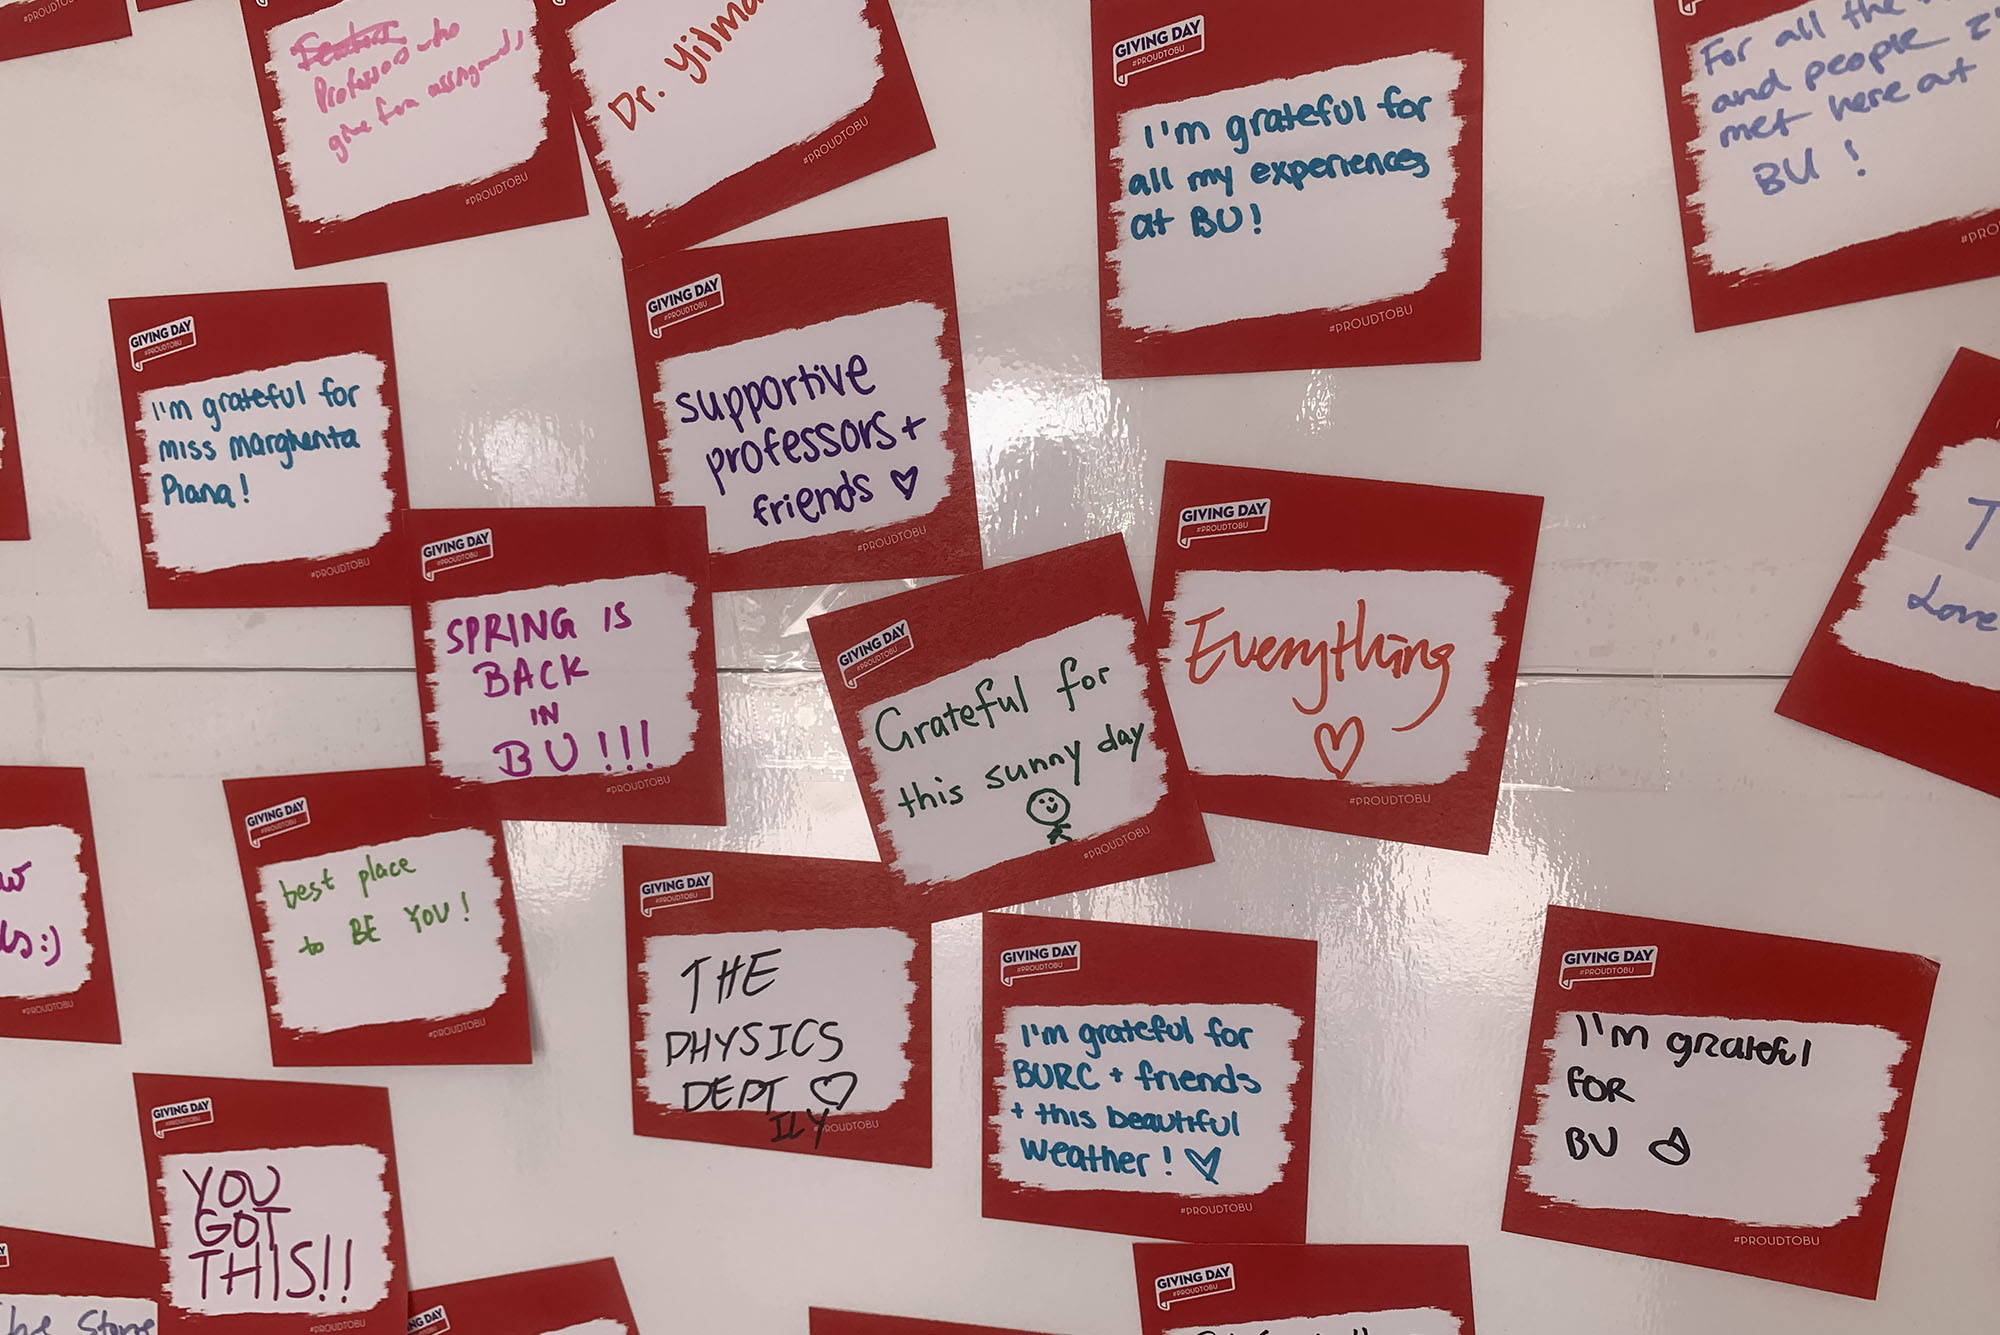 #PROUDTOBU
Professors who
give fun assignments
#PROUDTOBU
Dr.
#PROUDTOBU
GIVING DAY
#PROUDTOBU
I'm grateful for
all my experiences
at BU!
#PROUDTOBU
For all the
and people
met here at
BU!
GIVING DAY
#PROUDTOBU
I'm grateful for
miss margherita
Piana!
#PROUDTOBU
GIVING DAY
#PROUDTOBU
supportive
professors +
friends ♡
#PROUDTOBU
GIVING DAY
#PROUDTOBU
SPRING IS
BACK
IN
BU!!!
#PROUDTOBU
GIVING DAY
#PROUDTOBU
Grateful for
this sunny day
#PROUDTOBU
GIVING DAY
#PROUDTOBU
Everything
♡
#PROUDTOBU
Love
:)
#PROUDTOBU
GIVING DAY
#PROUDTOBU
best place
to BE YOU!
#PROUDTOBU
GIVING DAY
#PROUDTOBU
THE
PHYSICS
DEPT ♡
ILY
#PROUDTOBU
GIVING DAY
#PROUDTOBU
I'm grateful for
BURC + friends
+ this beautiful
weather! ♡
#PROUDTOBU
GIVING DAY
#PROUDTOBU
I'm grateful
FOR
BU
#PROUDTOBU
GIVING DAY
#PROUDTOBU
YOU
GOT
THIS!!
#PROUDTOBU
GIVING DAY
GIVING DAY
#PROUDTOBU